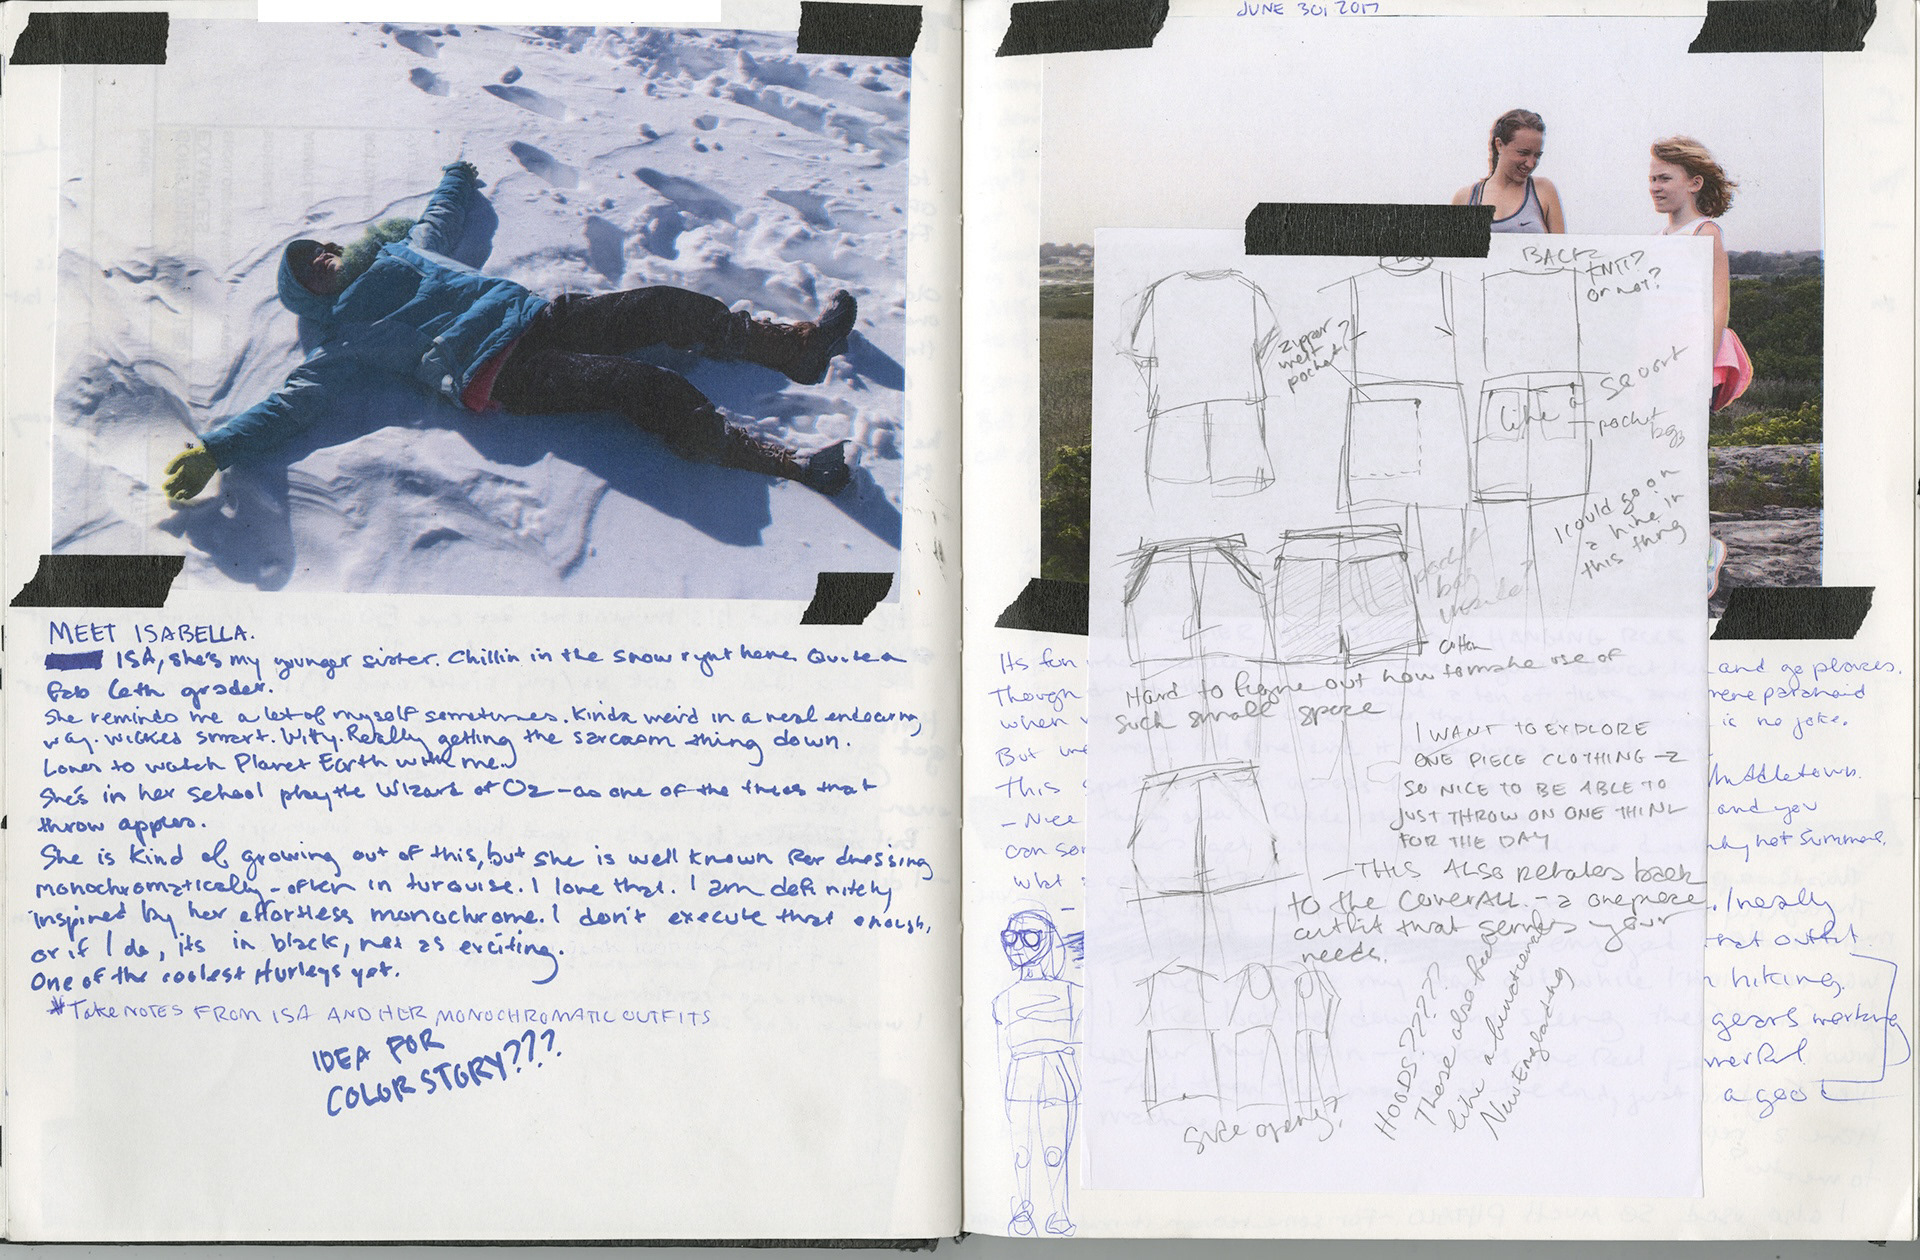 MEET ISABELLA.
ISA, she's my younger sister. Chillin in the snow rynt here. Quite a
fab 6th grader.
She reminds me a lot of myself sometimes. Kinda weird in a real endearing
way. wicked smart. Witty. Really getting the sarcasm thing down.
Loves to watch Planet Earth with me.
She's in her school play the Wizard of Oz - as one of the trees that
throw apples.
She is kind of growing out of this, but she is well known for dressing
monochromatically - often in turquise. I love that. I am definitely
inspired by her effortless monochrome. I don't execute that enough,
or if I do, its in black, not as exciting.
One of the coolest Hurleys yet.
*Take NOTES FROM ISA AND HER MONOCHROMATIC OUTFITS
IDEA FOR
COLOR STORY???
JUNE 30, 2017
BACK?
KNIT?
or not?
zipper
welt
pocket?
like a Scort
pocket
bag
I could go on
a hike in
this thing
pocket
bag
inside?
cotton
Hard to figure out how to make use of
such small space
I WANT TO EXPLORE
ONE PIECE CLOTHING - 
SO NICE TO BE ABLE TO
JUST THROW ON ONE THING
FOR THE DAY
- THIS ALSO relates back
to the COVERALL. - a one piece
outfit that serves your
needs.
HOODS?????
These also feel
like a functional
New England thing
Side opening?
Its fun
Though
when
But we
This
- Nice
can
what
and go places.
more paranoid
is no joke.
Middletown.
and you
hot summer.
I really
that outfit.
hiking.
gears working
a good